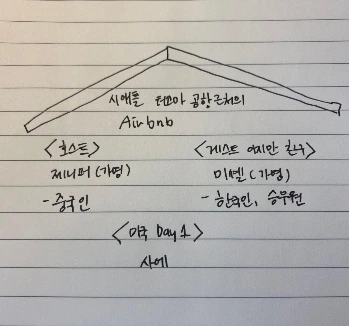 시애틀 타코마 공항근처의
Airbnb
<호스트>
<게스트 이지만 친구>
제니퍼 (가명)
미셸 (가명)
- 중국인
- 한국인, 승무원
<미국 Day 1>